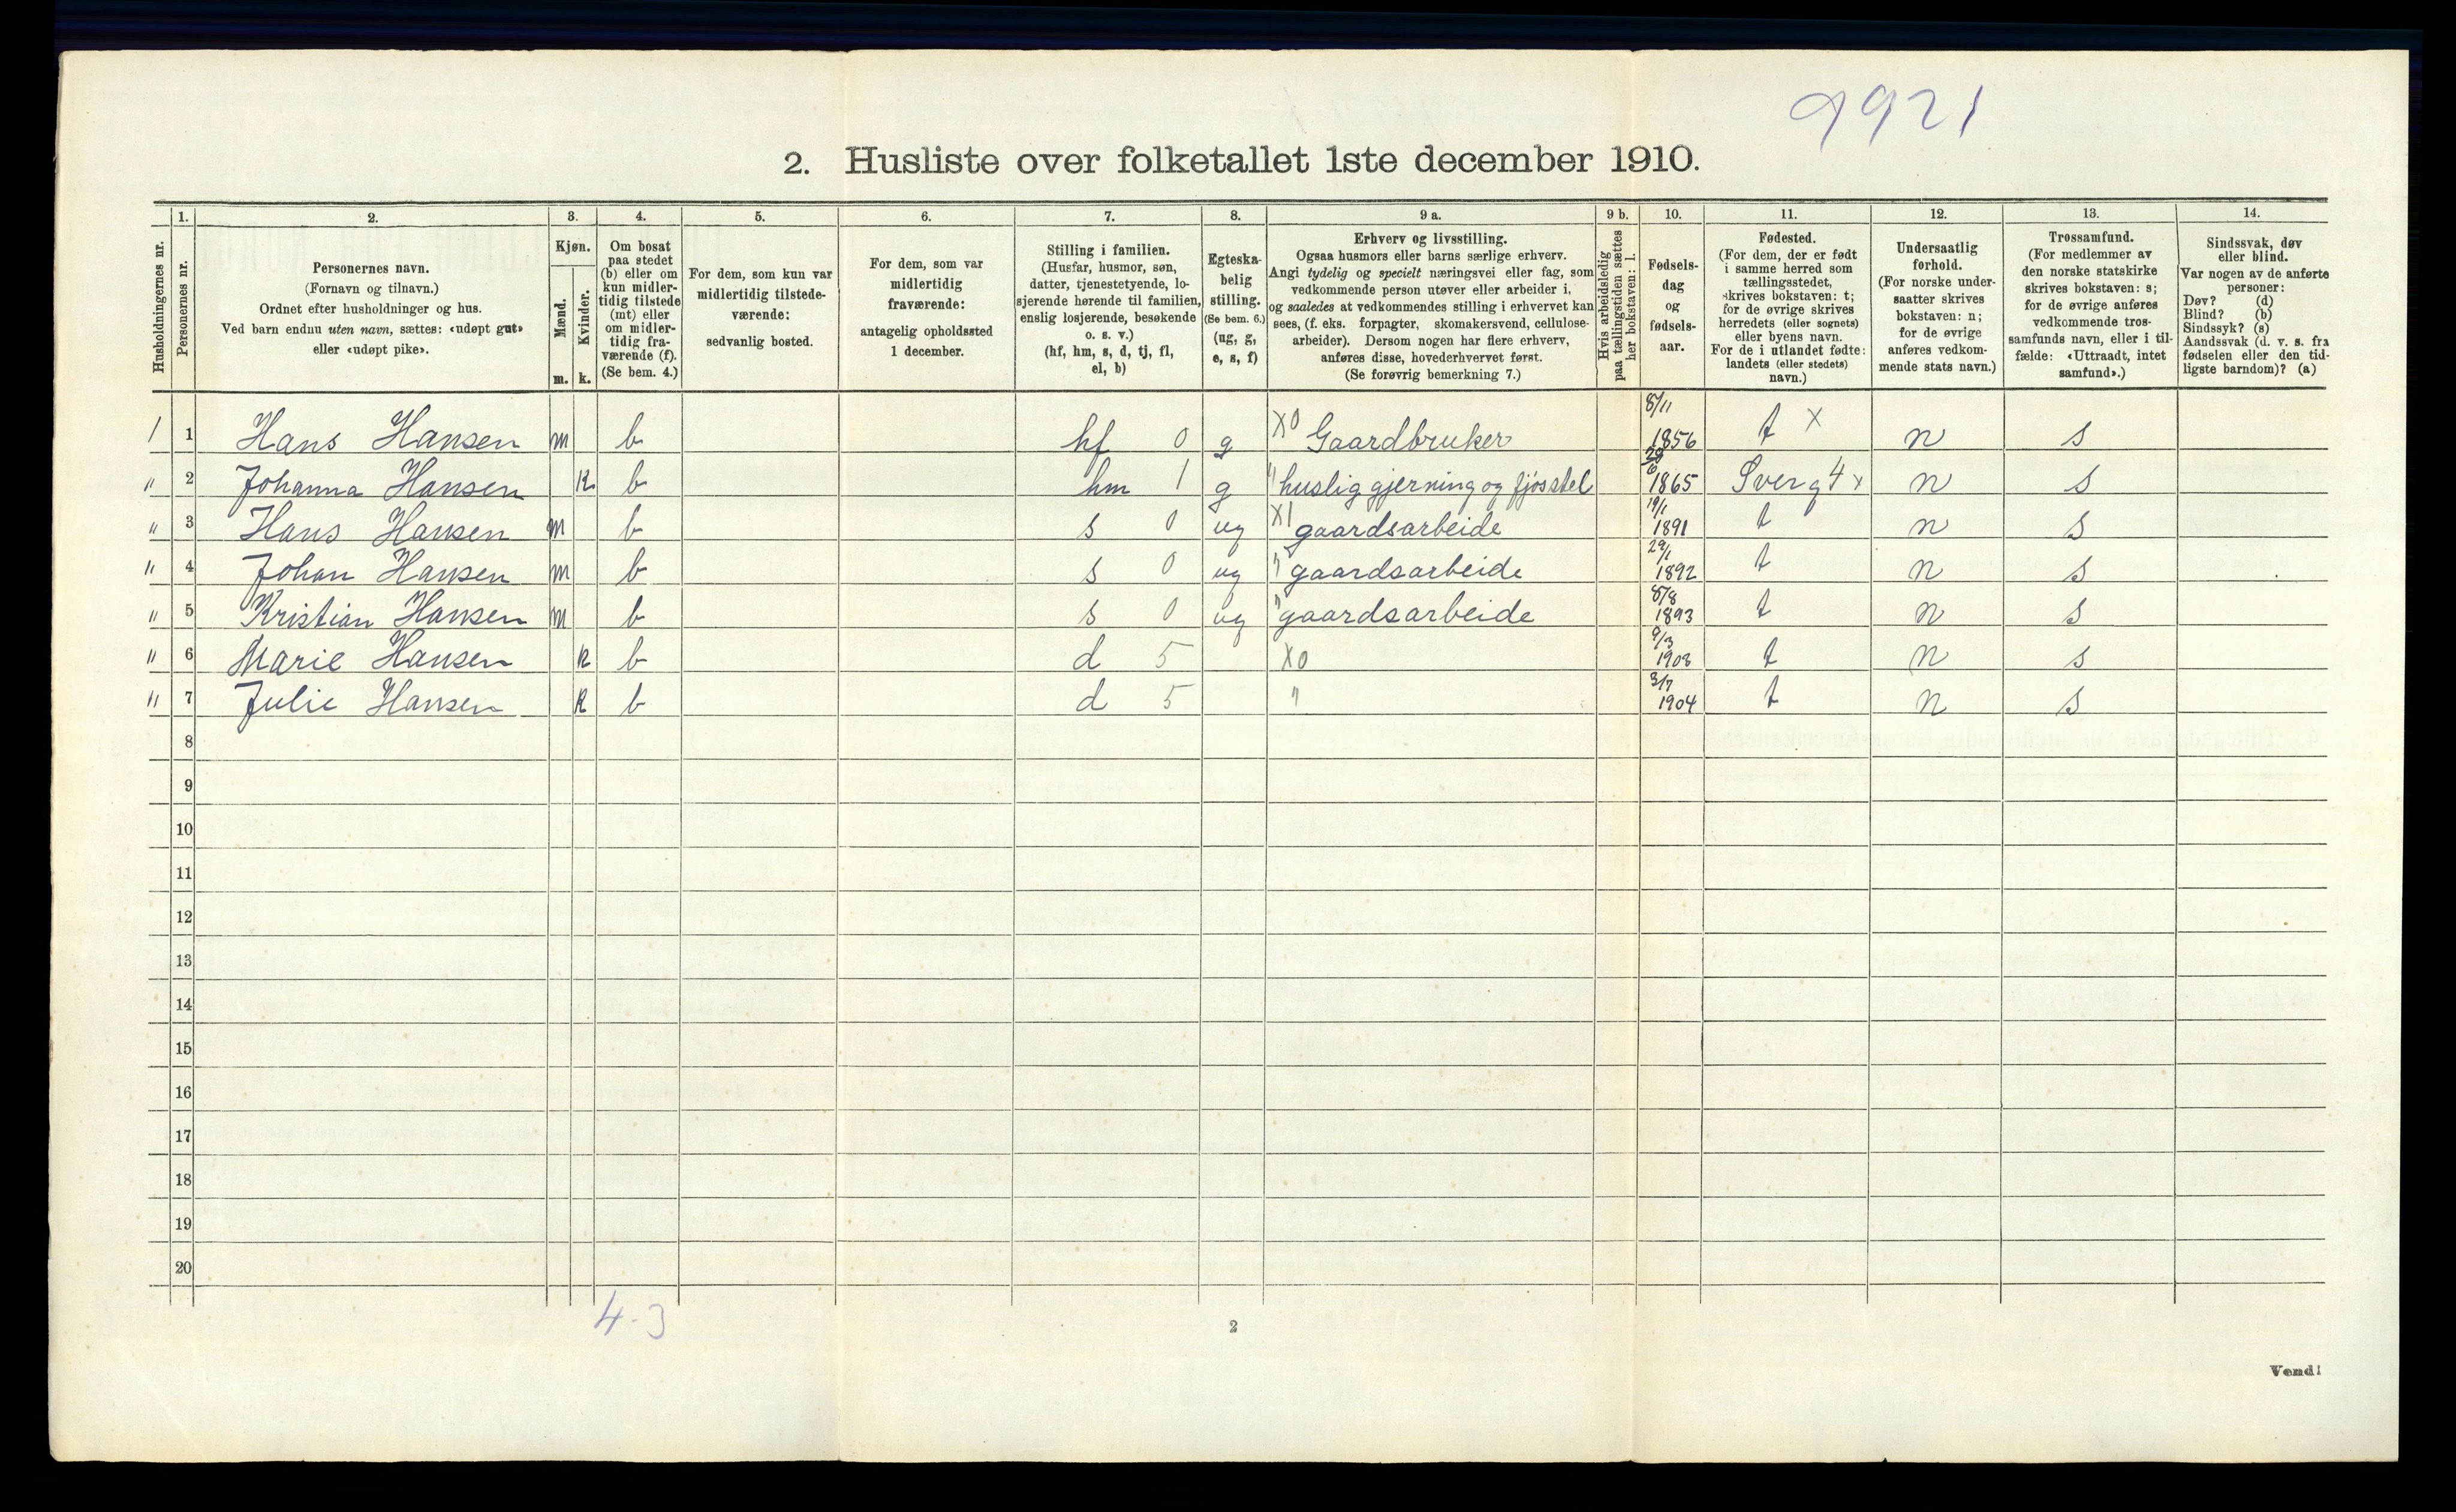 9921
2. Husliste over folketallet 1ste december 1910.
Husholdningernes nr.
1. Personernes nr.
2. Personernes navn.
(Fornavn og tilnavn.)
Ordnet efter husholdninger og hus.
Ved barn endnu uten navn, sættes: «udøpt gut»
eller «udøpt pike».
3. Kjøn.
Mænd. m.
Kvinder. k.
4. Om bosat
paa stedet
(b) eller om
kun midler-
tidig tilstede
(mt) eller
om midler-
tidig fra-
værende (f).
(Se bem. 4.)
5. For dem, som kun var
midlertidig tilstede-
værende:
sedvanlig bosted.
6. For dem, som var
midlertidig
fraværende:
antagelig opholdssted
1 december.
7. Stilling i familien.
(Husfar, husmor, søn,
datter, tjenestetyende, lo-
sjerende hørende til familien,
enslig losjerende, besøkende
o. s. v.)
(hf, hm, s, d, tj, fl,
el, b)
8. Egteska-
belig
stilling.
(Se bem. 6.)
(ug, g,
e, s, f)
9 a. Erhverv og livsstilling.
Ogsaa husmors eller barns særlige erhverv.
Angi tydelig og specielt næringsvei eller fag, som
vedkommende person utøver eller arbeider i,
og saaledes at vedkommendes stilling i erhvervet kan
sees, (f. eks. forpagter, skomakersvend, cellulose-
arbeider). Dersom nogen har flere erhverv,
anføres disse, hovederhvervet først.
(Se forøvrig bemerkning 7.)
9 b. Hvis arbeidsledig
paa tællingstiden sættes
her bokstaven: l.
10. Fødsels-
dag
og
fødsels-
aar.
11. Fødested.
(For dem, der er født
i samme herred som
tællingsstedet,
skrives bokstaven: t;
for de øvrige skrives
herredets (eller sognets)
eller byens navn.
For de i utlandet fødte:
landets (eller stedets)
navn.)
12. Undersaatlig
forhold.
(For norske under-
saatter skrives
bokstaven: n;
for de øvrige
anføres vedkom-
mende stats navn.)
13. Trossamfund.
(For medlemmer av
den norske statskirke
skrives bokstaven: s;
for de øvrige anføres
vedkommende tros-
samfunds navn, eller i til-
fælde: «Uttraadt, intet
samfund».)
14. Sindssvak, døv
eller blind.
Var nogen av de anførte
personer:
Døv? (d)
Blind? (b)
Sindssyk? (s)
Aandssvak (d. v. s. fra
fødselen eller den tid-
ligste barndom)? (a)
1 1 Hans Hansen m b hf 0 g X0 Gaardbruker 8/11 1856 t x n s
" 2 Johanna Hansen k b hm 1 g " huslig gjerning og fjøsstel 1865 4 x n s
" 3 Hans Hansen m b s 0 ug X1 gaardsarbeide 19/1 1891 t n s
" 4 Johan Hansen m b s 0 ug " gaardsarbeide 29/1 1892 t n s
" 5 Kristian Hansen m b s 0 ug " gaardsarbeide 8/8 1893 t n s
" 6 Marie Hansen k b d 5 X0 9/3 1908 t n s
" 7 Julie Hansen k b d 5 " 3/7 1904 t n s
8
9
10
11
12
13
14
15
16
17
18
19
20
4-3
2
Vend!